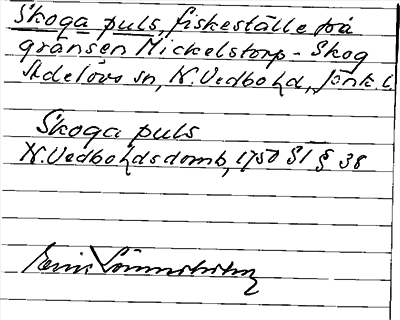 Skoga puls, fiskeställe på
gränsen Mickelstorp - Skog
Adelövs sn, N. Vedbo hd, Jönk. l.
Skoga puls
N. Vedbo hds domb, 1750 St § 38